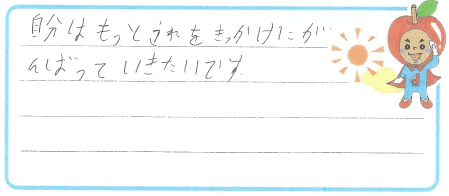 自分はもっとこれをきっかけにが
んばっていきたいです。